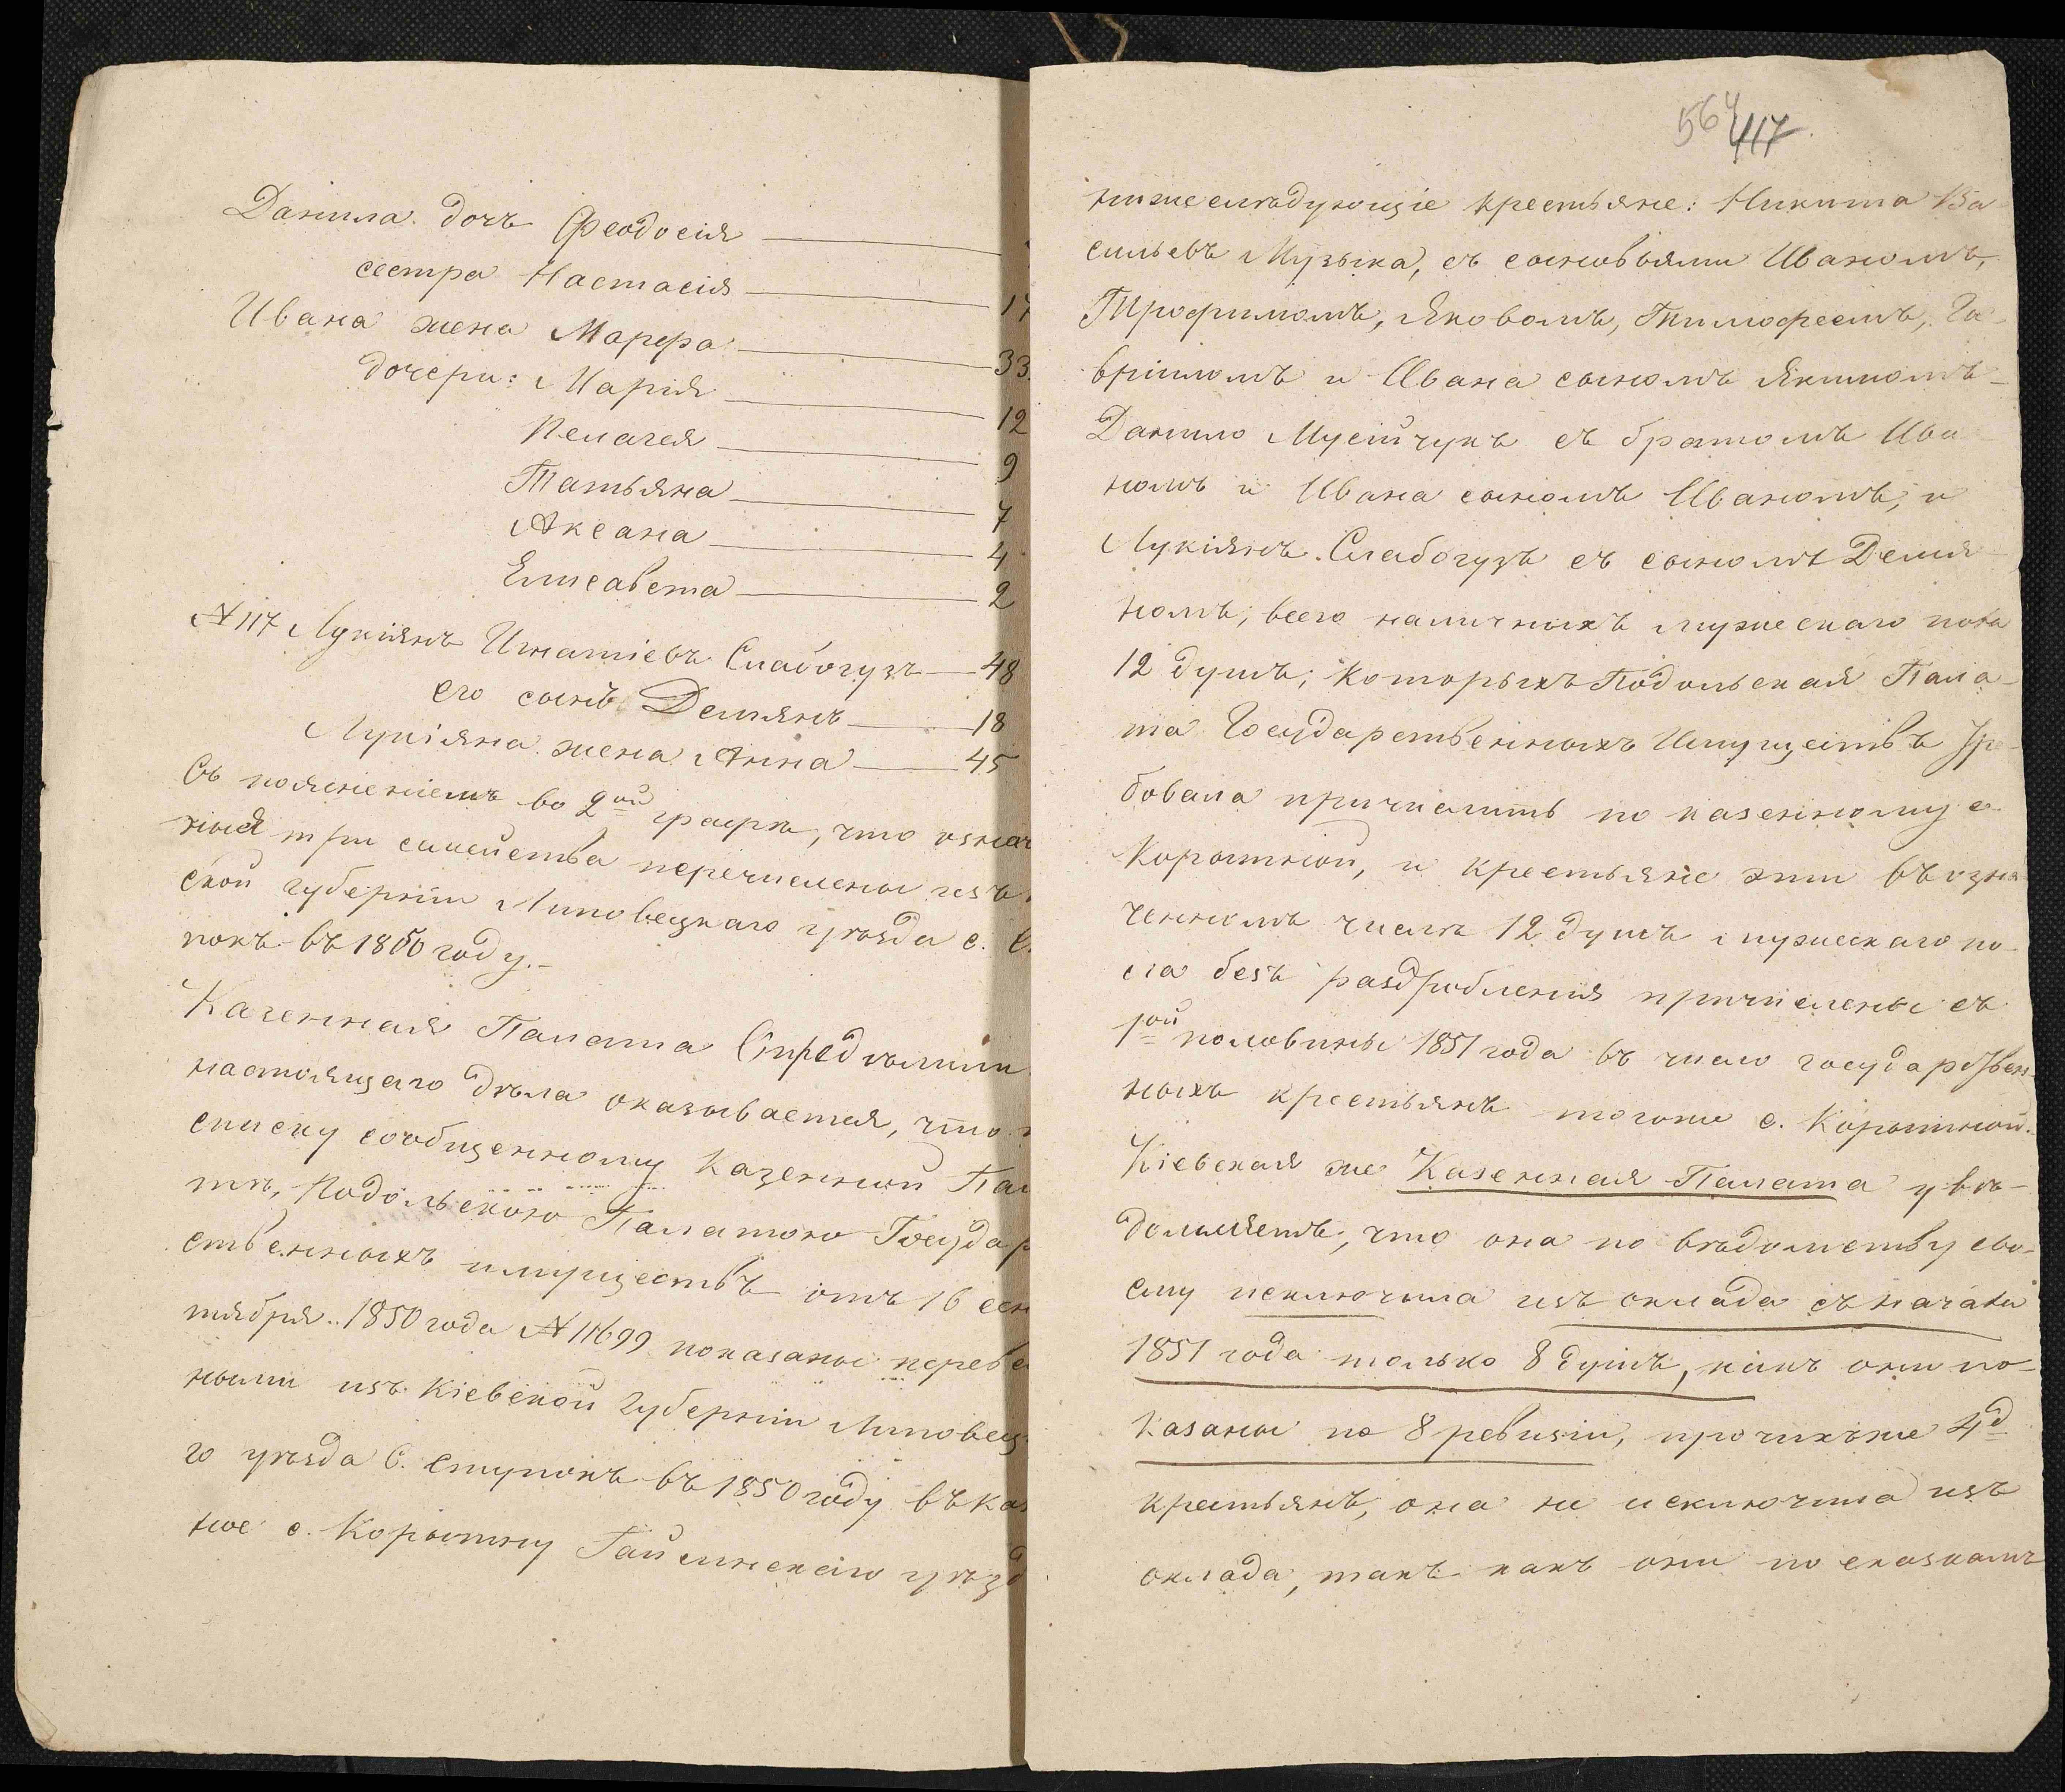 Данила дочь Феодосія
сестра Настасія — 17
Ивана жена Марфа — 33
дочери: Марія — 12
Пелагея — 9
Татьяна — 7
Аксана — 4
Елисавета — 2
№ 117 Лукіянъ Игнатіевъ Слабогузъ — 48
его сынъ Демянъ — 18
Лукіяна жена Анна — 45
Съ поясненіемъ во 2ой графѣ, что означ
ныя три семейства перечислены изъ
ской губерніи Липовецкаго уѣзда с. С
покъ въ 1850 году.
Казенная Палата Опредѣлили
настоящаго дѣла оказывается, что
списку сообщенному Казенной Пал
тѣ, Подольскою Палатою Государ
ственныхъ имуществъ отъ 16 сен
тября 1850 года № 11699 показаны переве
ными изъ Кіевской Губерніи Липовец
го уѣзда С. Ступокъ въ 1850 году въ каз
ное с. Корытну Гайсинскаго уѣзд
564 417
нижеслѣдующіе крестьяне: Никита Ва
сильевъ Музыка, съ сыновьями Иваномъ,
Трофимомъ, Яковомъ, Тимофеемъ, Га
вріиломъ и Ивана сыномъ Якимомъ
Данило Мусійчукъ съ братомъ Ива
номъ и Ивана сыномъ Иваномъ, и
Лукіянъ Слабогузъ съ сыномъ Демя
номъ, всего наличныхъ мужескаго пола
12 душъ; которыхъ Подольская Пала
та Государственныхъ Имуществъ тре
бовала причислить по казенному с.
Корытной, и крестьяне эти въ озна
ченномъ числѣ 12 душъ мужескаго по
ла безъ раздробленія причислены съ
1ой половины 1851 года въ число государствен
ныхъ крестьянъ тогоже с. Корытной.
Кіевская же Казенная Палата увѣ
домляетъ, что она по вѣдомству сво
ему исключила изъ оклада съ начала
1851 года только 8 душъ, какъ они по
казаны по 8 ревизіи, прочихъ же 4д
крестьянъ, она не исключила изъ
оклада, такъ какъ они по сказкамъ